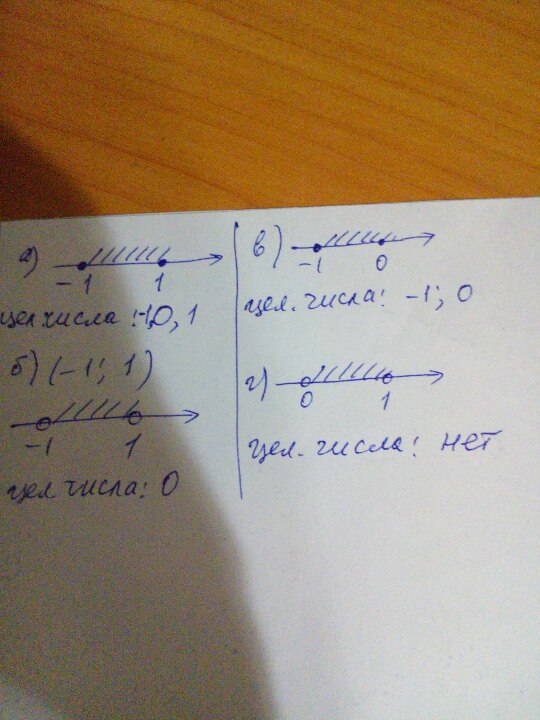 а)
-1 1
цел числа : -1,0, 1
б) (-1; 1)
-1 1
цел числа: 0
в)
-1 0
цел. числа: -1; 0
г)
0 1
цел. числа: нет